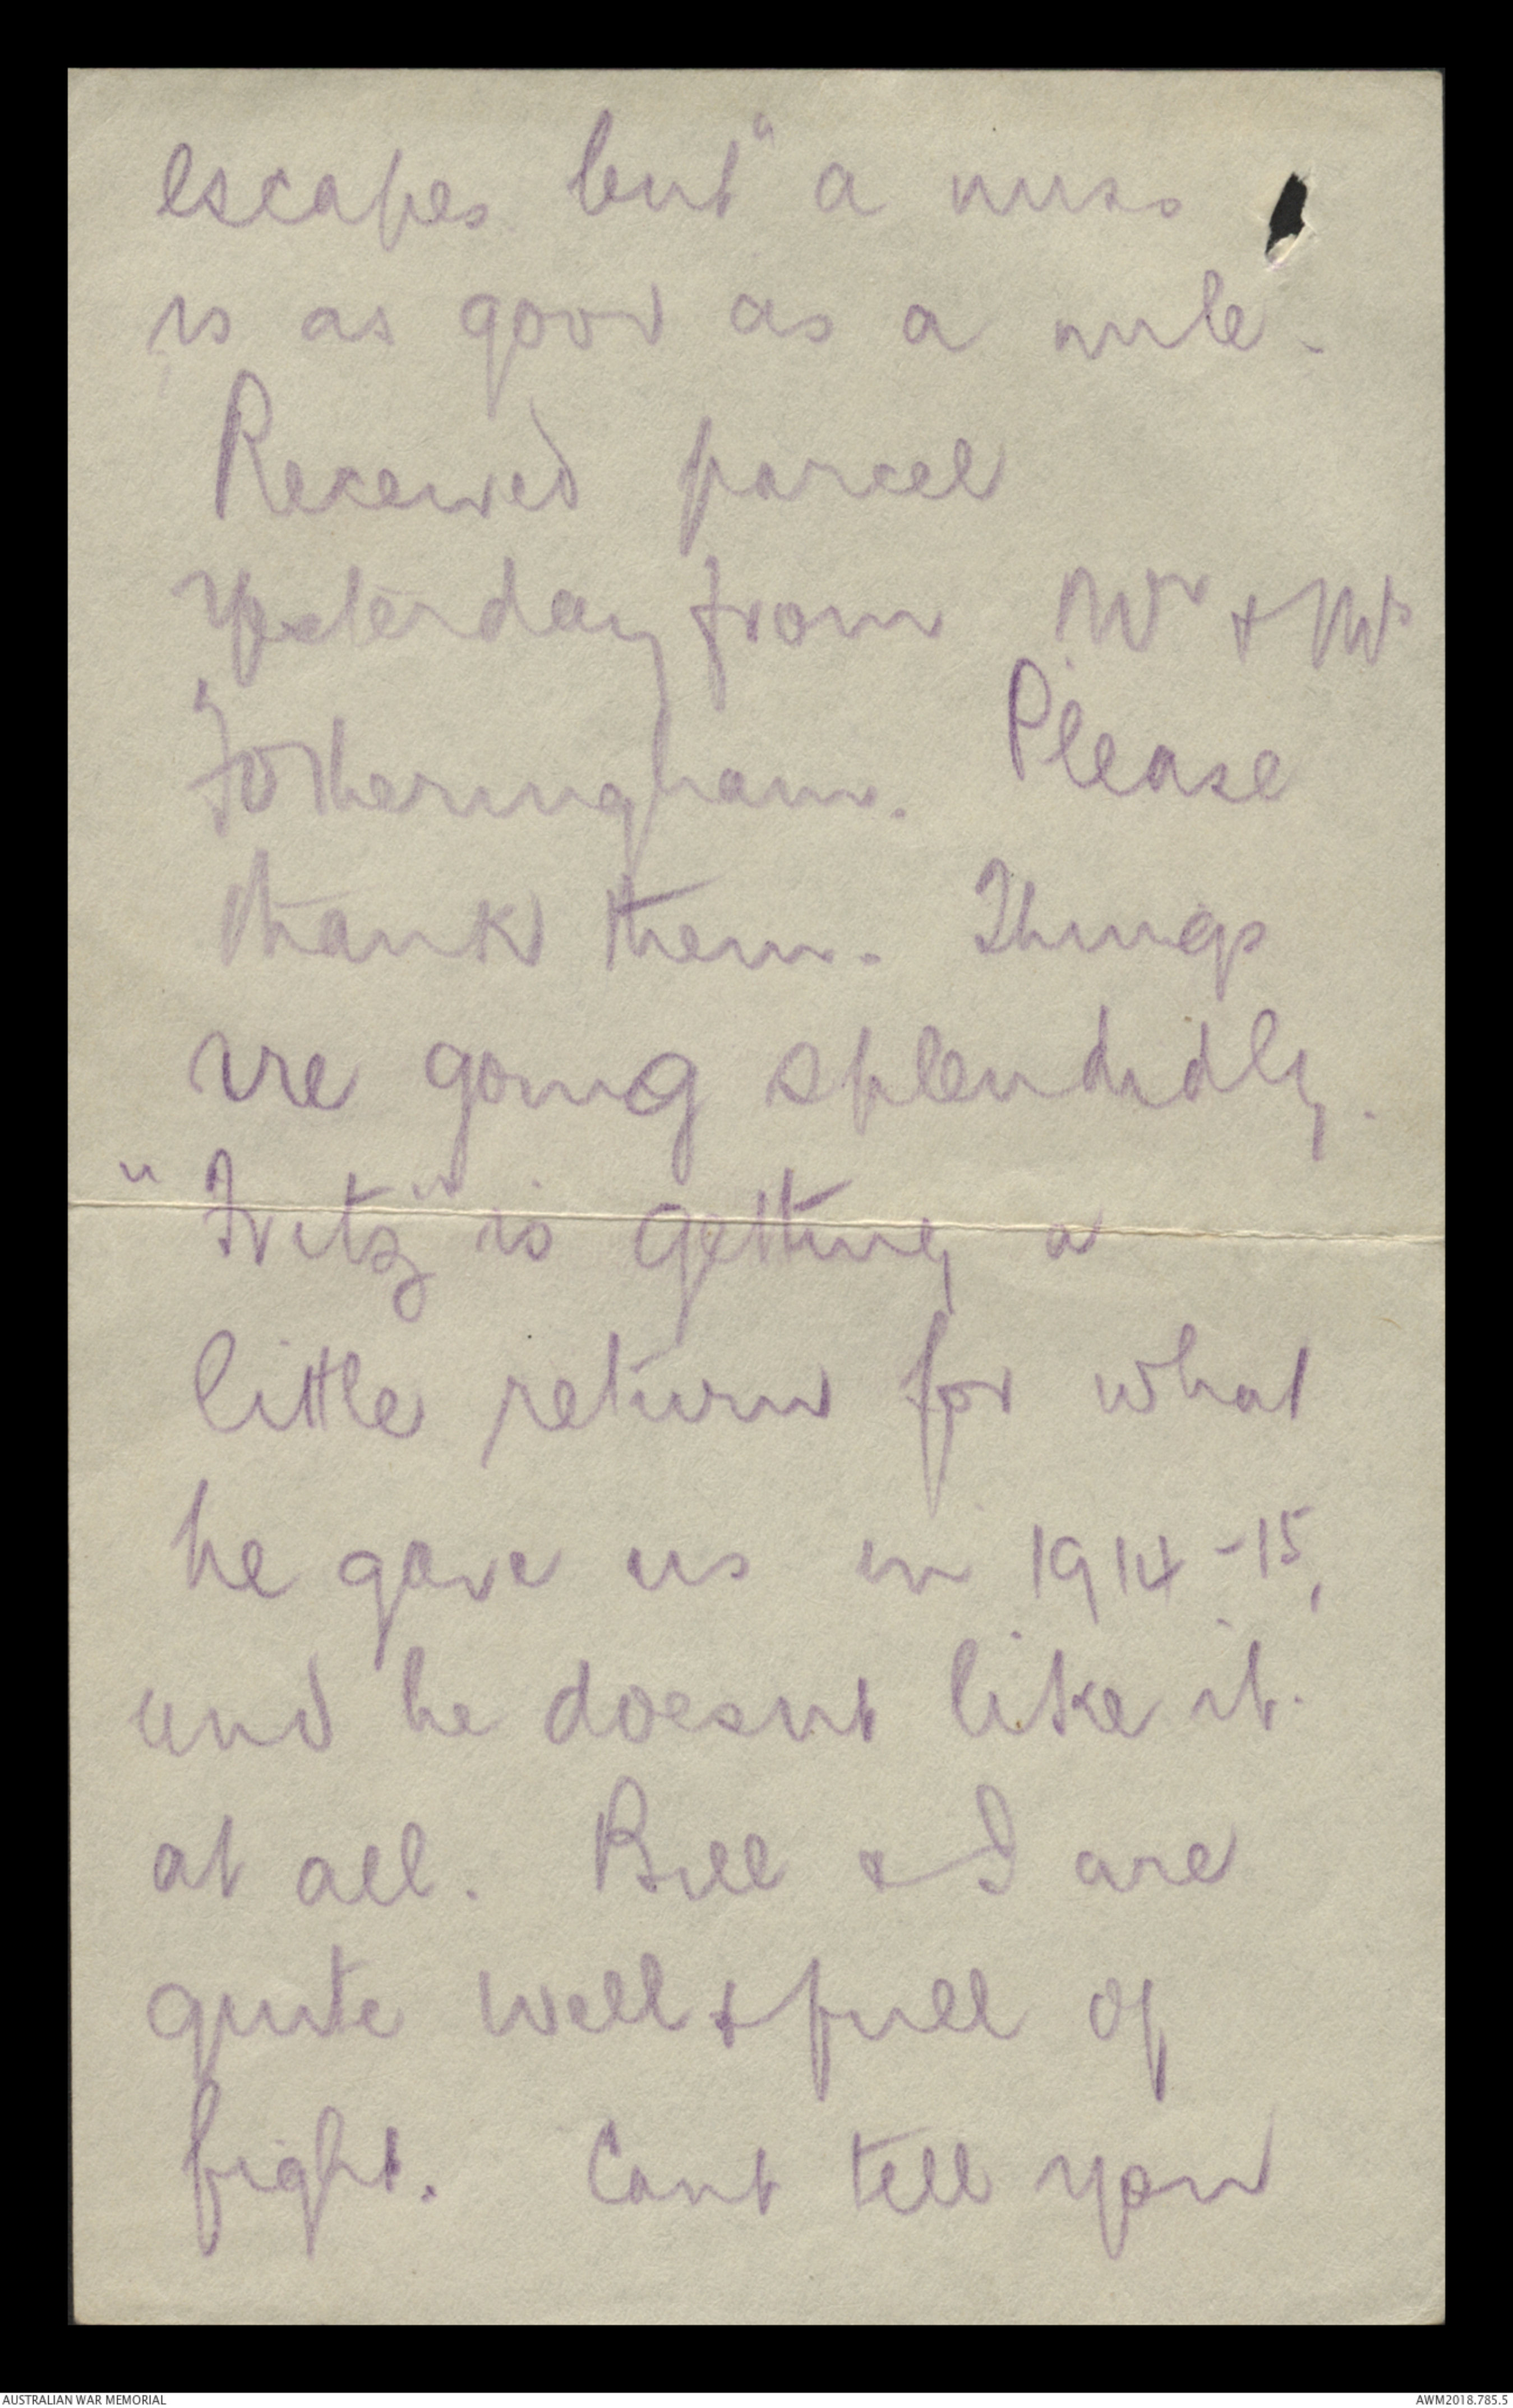 escapes but "a miss
is as good as a mile.
Received parcel
yesterday from Mr & Mrs
Fotheringham. Please
thank them. Things
are going splendidly.
"Fritz" is getting a
little return for what
he gave us in 1914-15,
and he doesnt like it.
at all. Bill & I are
quite well & full of
fight. Cant tell you
AUSTRALIAN WAR MEMORIAL
AWM2018.785.5